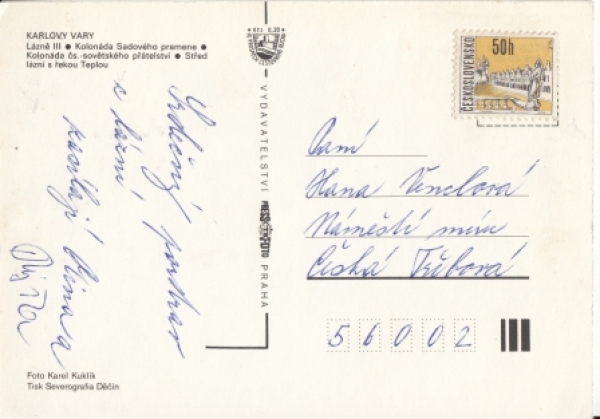 KARLOVY VARY
Lázně III ● Kolonáda Sadového pramene ●
Kolonáda čs.-sovětského přátelství ● Střed
lázní s řekou Teplou
Srdečný pozdrav
z lázní
zasílají Jiřina a
50h
ČESKOSLOVENSKO
VYDAVATELSTVÍ PRESSFOTO PRAHA
Paní
Hana Venclová
Náměstí míru
Česká Třebová
56002
Foto Karel Kuklík
Tisk Severografia Děčín